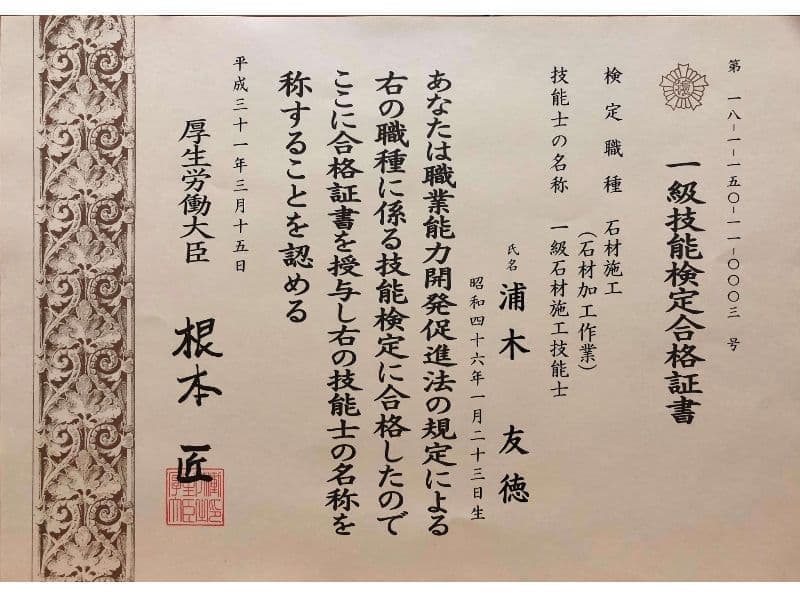 第 一八-一-一五〇-一一-〇〇〇三 号
一級技能検定合格証書
検定職種 石材施工
(石材加工作業)
技能士の名称 一級石材施工技能士
氏名 浦木 友徳
昭和四十六年一月二十三日生
あなたは職業能力開発促進法の規定による
右の職種に係る技能検定に合格したので
ここに合格証書を授与し右の技能士の名称を
称することを認める
平成三十一年三月十五日
厚生労働大臣 根本 匠